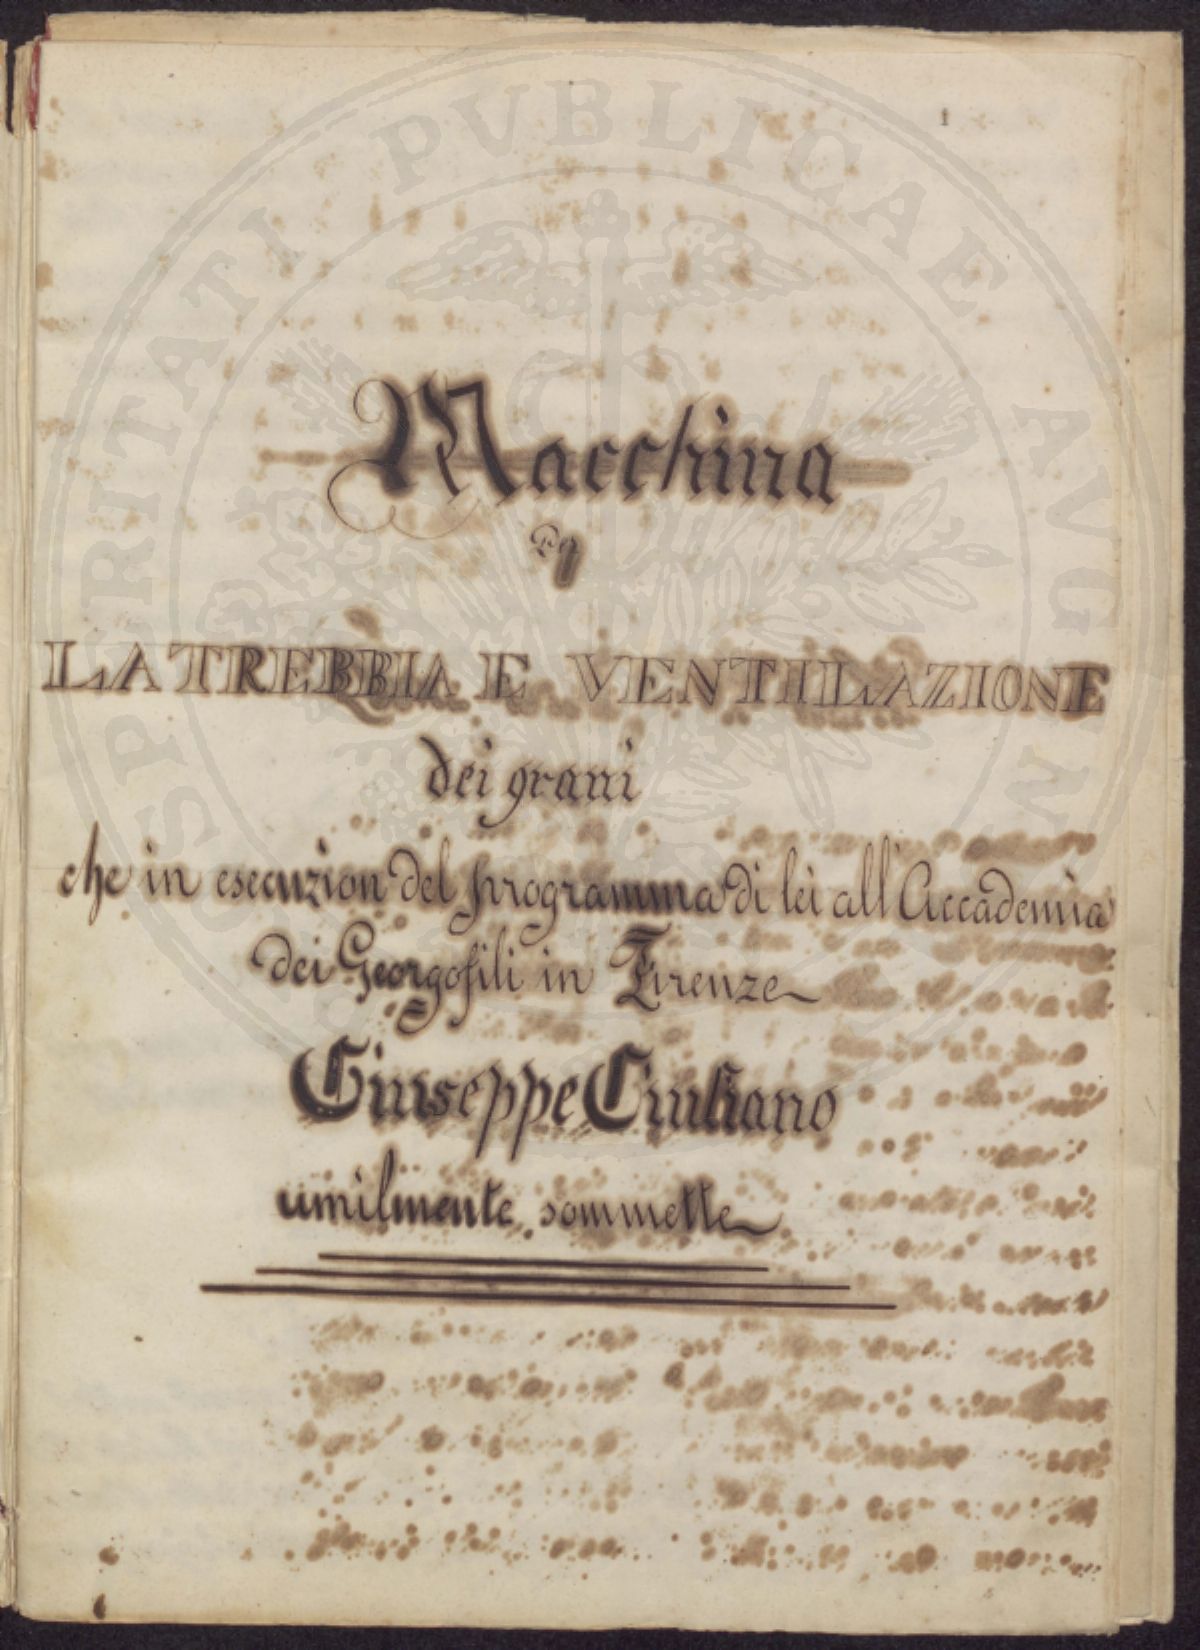 1
SPERITATI PVBLICAE
Macchina
LA TREBBIA E VENTILAZIONE
dei grani
che in esecuzion del programma di lei all'Accademia
dei Georgofili in Firenze
Giuseppe Giuliano
umilmente sommette